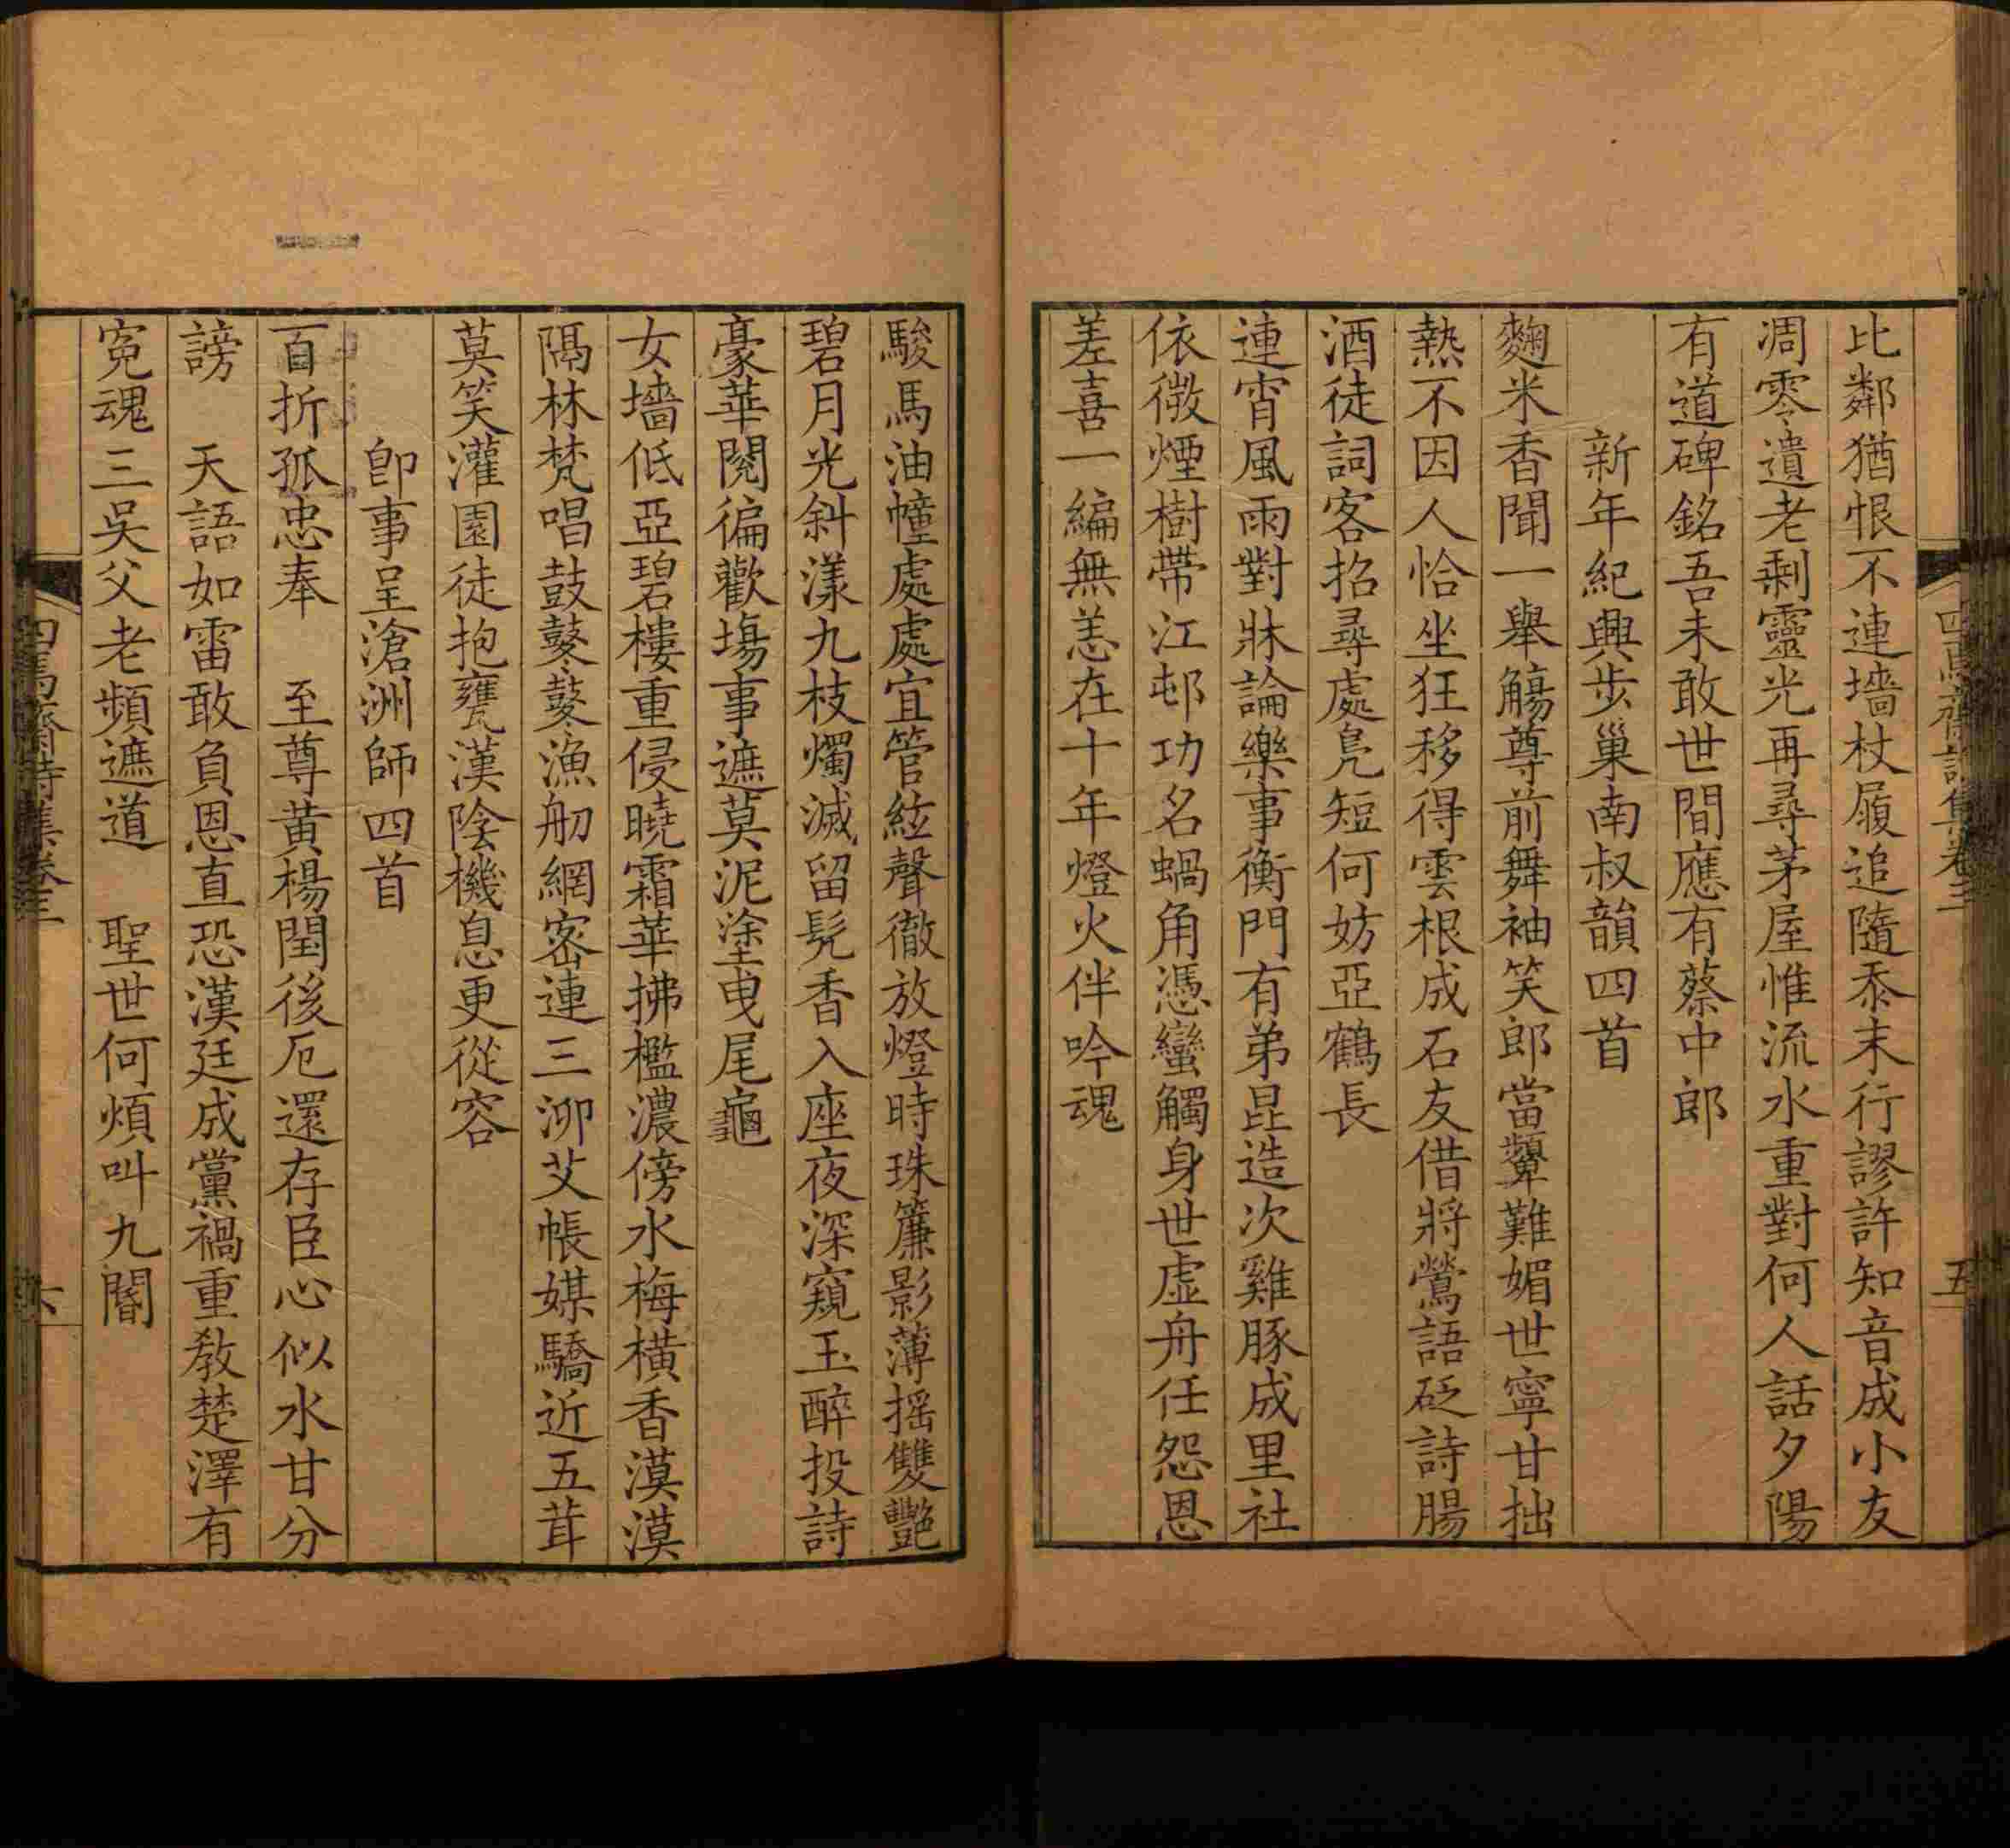 比鄰猶恨不連墻杖履追隨忝末行謬許知音成小友
凋零遺老剩靈光再尋茅屋惟流水重對何人話夕陽
有道碑銘吾未敢世間應有蔡中郎
新年紀興步巢南叔韻四首
麴米香聞一舉觴尊前舞袖笑郎當顰難媚世寧甘拙
熱不因人恰坐狂移得雲根成石友借將鶯語砭詩腸
酒徒詞客招尋處鳧短何妨亞鶴長
連宵風雨對牀論樂事衡門有弟昆造次雞豚成里社
依微煙樹帶江邨功名蝸角憑蠻觸身世虛舟任怨恩
差喜一編無恙在十年燈火伴吟魂
五
駿馬油幢處處宜管絃聲徹放燈時珠簾影薄搖雙艷
碧月光斜漾九枝燭滅留髡香入座夜深窺玉醉投詩
豪華閱徧歡場事遮莫泥塗曳尾龜
女墻低亞碧樓重侵曉霜華拂檻濃傍水梅橫香漠漠
隔林梵唱鼓鼕鼕漁舠網密連三泖艾帳媒驕近五茸
莫笑灌園徒抱甕漢陰機息更從容
卽事呈滄洲師四首
百折孤忠奉　至尊黃楊閏後厄還存臣心似水甘分
謗　天語如雷敢負恩直恐漢廷成黨禍重教楚澤有
冤魂三吳父老頻遮道　聖世何煩叫九閽
詩集卷三
六